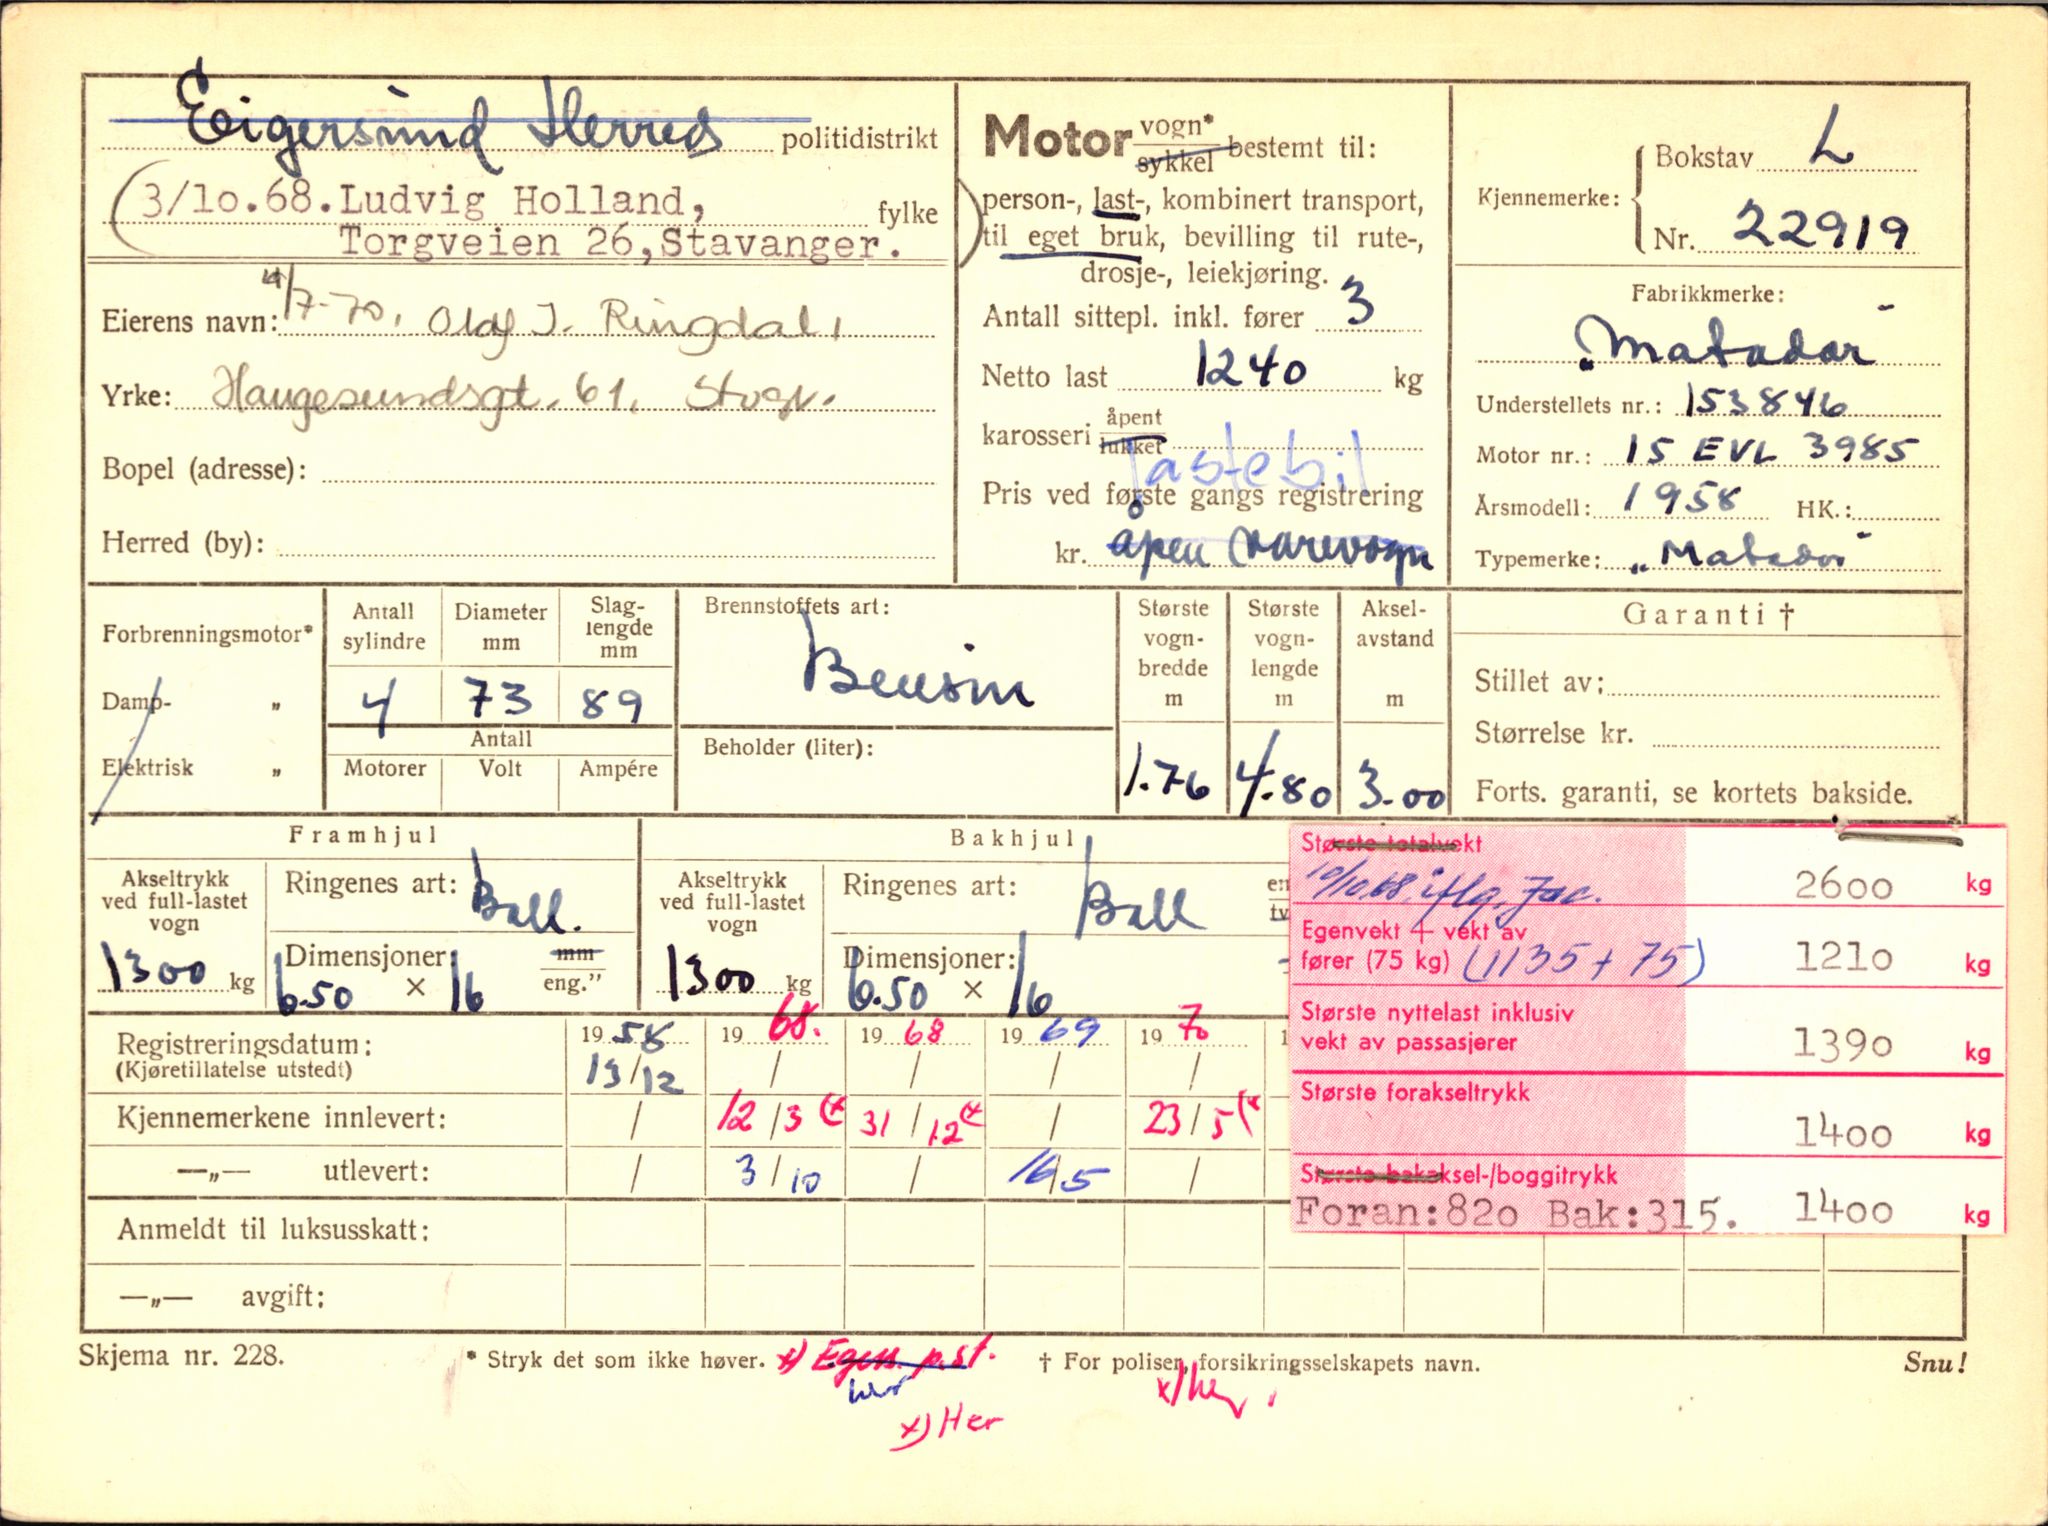 Eigersund Herreds politidistrikt
3/10.68. Ludvig Holland, fylke
Torgveien 26, Stavanger.
Eierens navn: 4/7-70, Olaf J. Ringdal,
Yrke: Haugesundsgt. 61, Stvgr.
Bopel (adresse):
Herred (by):
Motor vogn* sykkel bestemt til:
person-, last-, kombinert transport,
til eget bruk, bevilling til rute-,
drosje-, leiekjøring.
Antall sittepl. inkl. fører 3
Netto last 1240 kg
karosseri åpent lukket
Lastebil
Pris ved første gangs registrering
kr. åpen varevogn
Kjennemerke: Bokstav L
Nr. 22919
Fabrikkmerke:
"Matador"
Understellets nr.: 153846
Motor nr.: 15 EVL 3985
Årsmodell: 1958 HK.:
Typemerke: "Matador"
Forbrenningsmotor*
Damp- "
Elektrisk "
Antall sylindre
4
Diameter mm
73
Slag-lengde mm
89
Antall
Motorer Volt Ampére
Brennstoffets art:
Bensin
Beholder (liter):
Største vogn-bredde m
1.76
Største vogn-lengde m
4.80
Aksel-avstand m
3.00
Garanti †
Stillet av:
Størrelse kr.
Forts. garanti, se kortets bakside.
Framhjul
Akseltrykk ved full-lastet vogn
1300 kg
Ringenes art: Ball.
Dimensjoner: 6.50 × 16 mm eng."
Bakhjul
Akseltrykk ved full-lastet vogn
1300 kg
Ringenes art: Ball
Dimensjoner: 6.50 × 16
Største totalvekt
10/10.68 iflg. 2600 kg
Egenvekt + vekt av
fører (75 kg) (1135 + 75) 1210 kg
Største nyttelast inklusiv
vekt av passasjerer 1390 kg
Største forakseltrykk
1400 kg
Største bakaksel-/boggitrykk
Foran: 820 Bak: 315. 1400 kg
Registreringsdatum: 19 58 19 68. 19 68 19 69 19 70
(Kjøretillatelse utstedt) 13/12 / / / /
Kjennemerkene innlevert: / 12/3 (x 31/12 (x / 23/5 (x
—„— utlevert: / 3/10 / 16/5 /
Anmeldt til luksusskatt:
—„— avgift:
Skjema nr. 228. * Stryk det som ikke høver. x) Egers. p.st. † For poliser, forsikringsselskapets navn. Snu!
her x) her.
x) Her